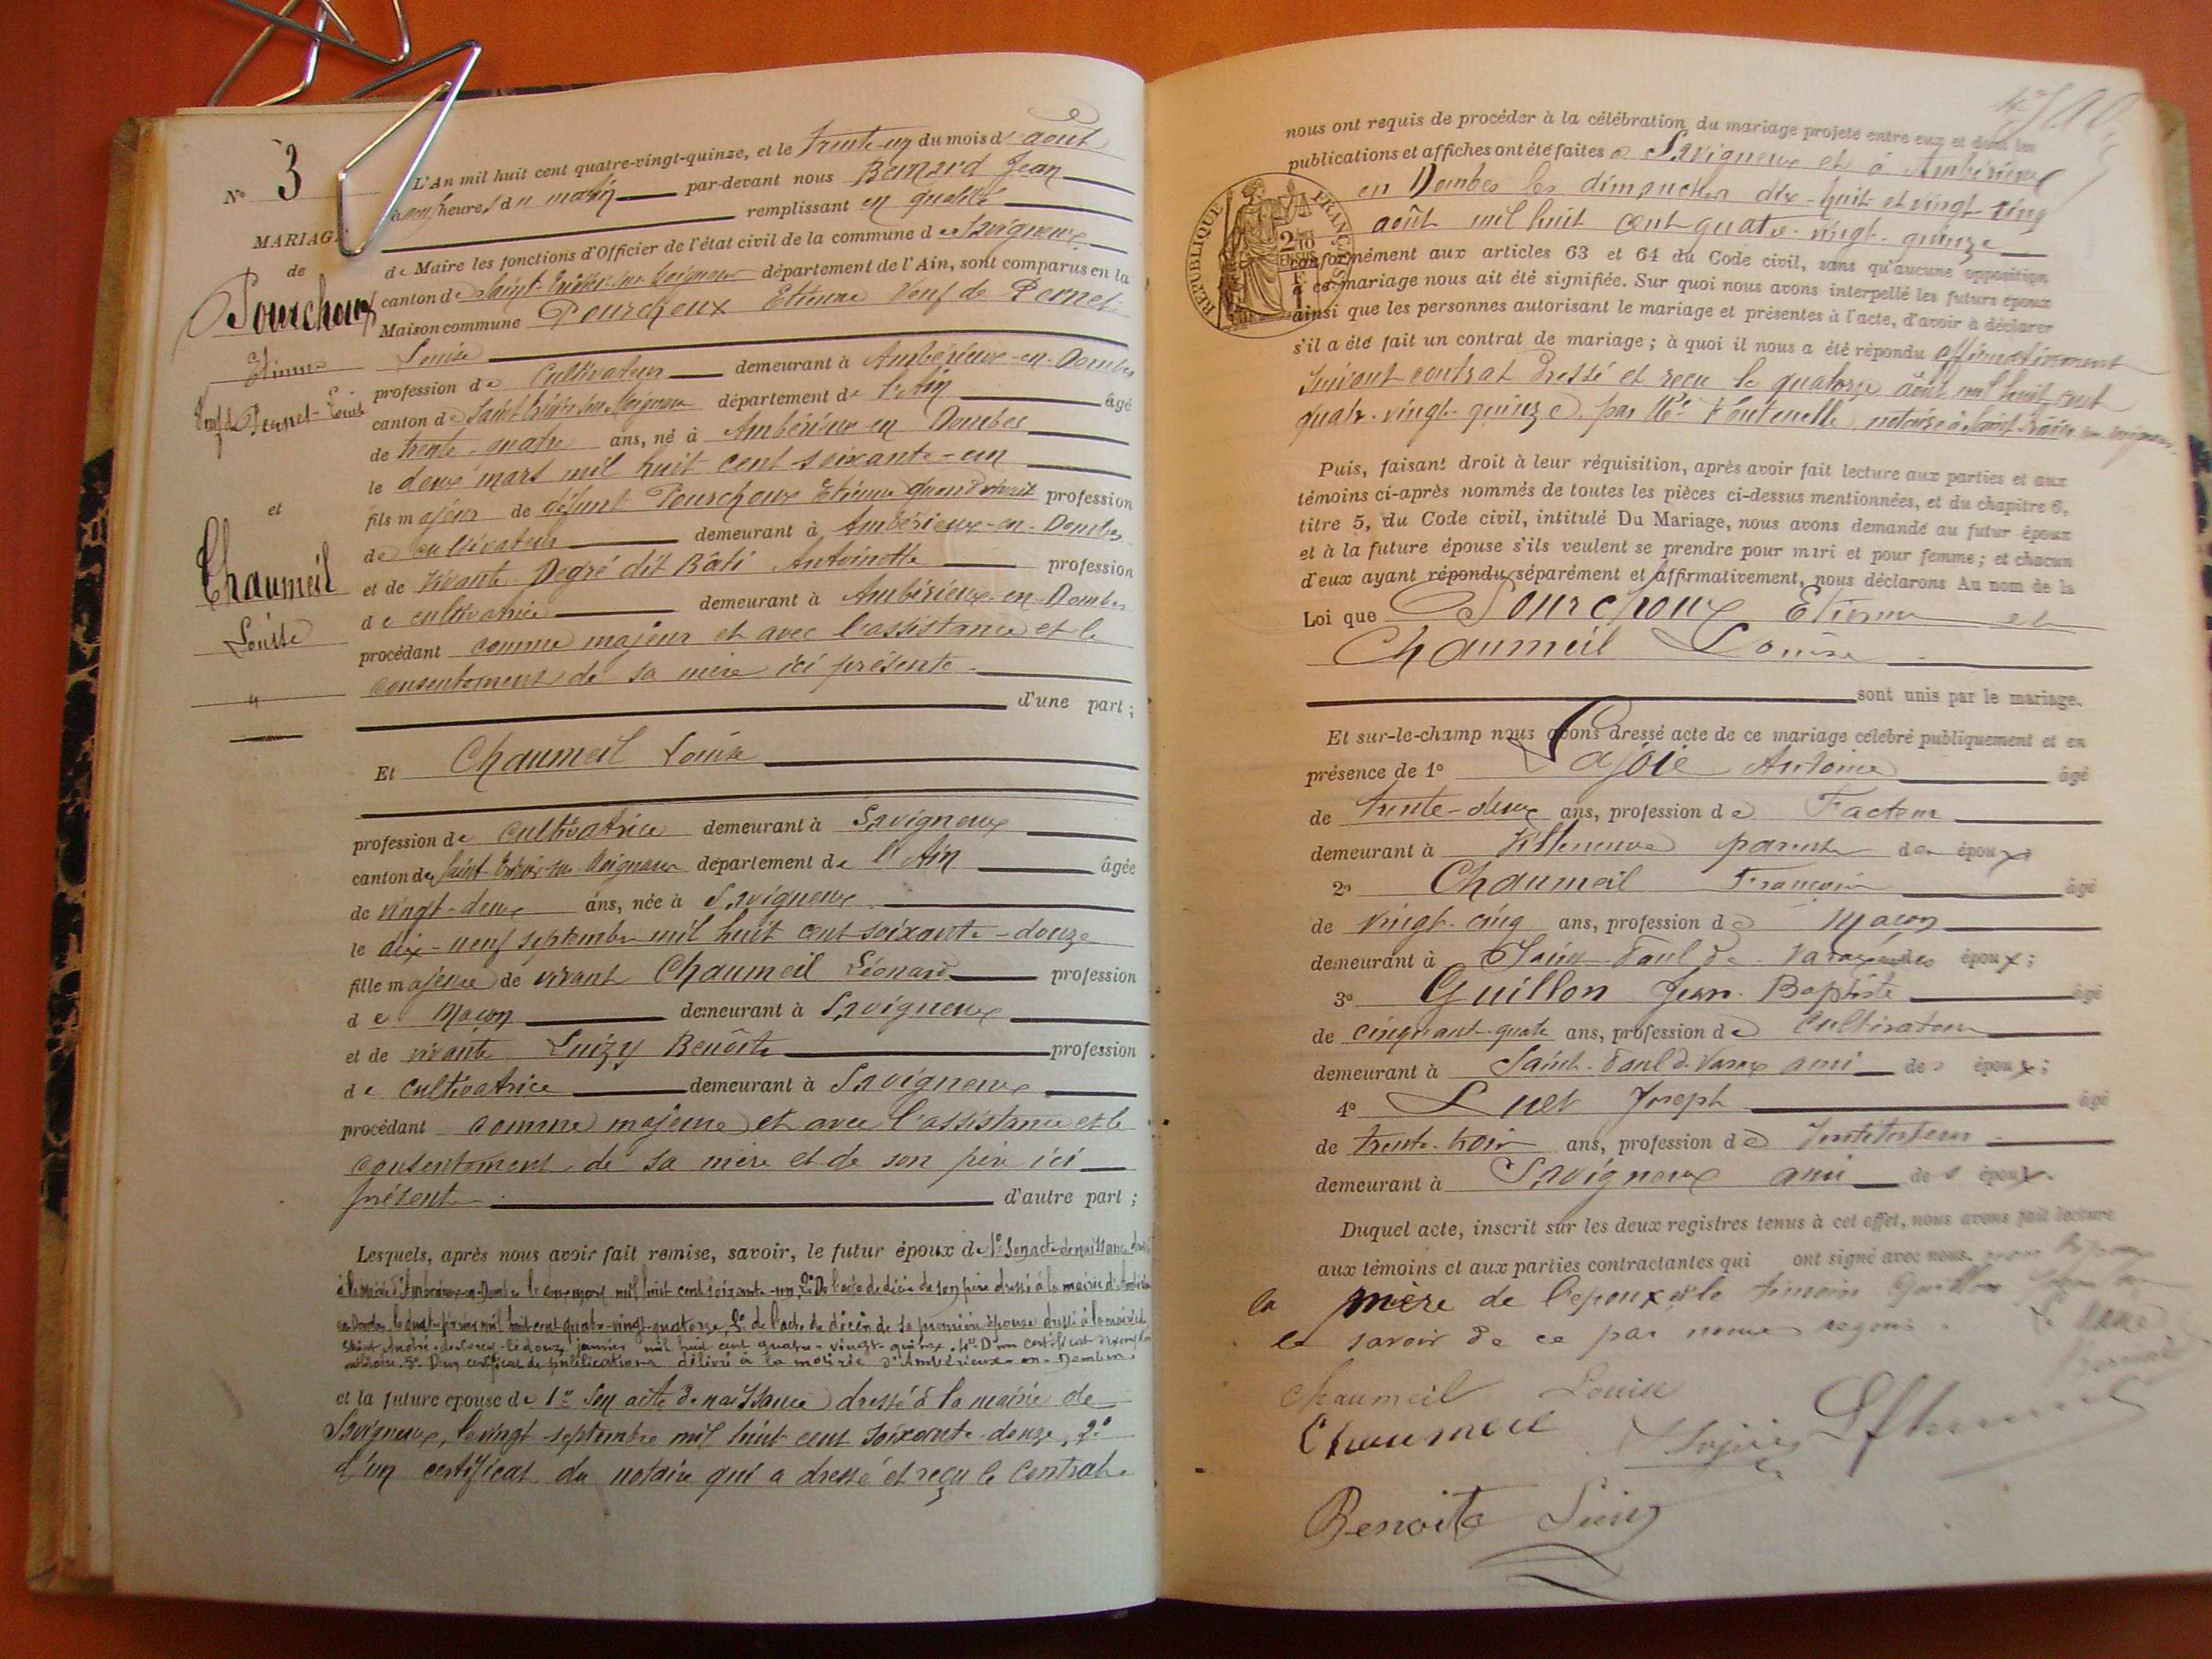 N° 3
MARIAGE
de
Pourcheux
Etienne
Veuf de Pernet Louise
et
Chaumeil
Louise
L'An mil huit cent quatre-vingt-quinze, et le trente-un du mois d'août
à heures du matin par-devant nous Bernard Jean
remplissant en qualité
de Maire les fonctions d'Officier de l'état civil de la commune de Savigneux
canton de Saint-Trivier-sur-Moignans département de l'Ain, sont comparus en la
Maison commune Pourcheux Etienne Veuf de Pernet
Louise
profession de cultivateur demeurant à Ambérieux-en-Dombes
canton de Saint-Trivier-sur-Moignans département de l'Ain âgé
de trente-quatre ans, né à Ambérieux en Dombes
le deux mars mil huit cent soixante-un
fils majeur de défunt Pourcheux Etienne quand vivait profession
de cultivateur demeurant à Ambérieux-en-Dombes
et de vivante Degré dit Bâti Antoinette profession
de cultivatrice demeurant à Ambérieux-en-Dombes
procédant comme majeur et avec l'assistance et le
consentement de sa mère ici présente
d'une part ;
Et Chaumeil Louise
profession de cultivatrice demeurant à Savigneux
canton de Saint-Trivier-sur-Moignans département de l'Ain âgée
de vingt-deux ans, née à Savigneux
le dix-neuf septembre mil huit cent soixante-douze
fille majeure de vivant Chaumeil Léonard profession
de Maçon demeurant à Savigneux
et de vivante Luizy Benoîte profession
de cultivatrice demeurant à Savigneux
procédant comme majeure et avec l'assistance et le
consentement de sa mère et de son père ici
présents d'autre part ;
Lesquels, après nous avoir fait remise, savoir, le futur époux de 1° Son acte de naissance dressé
à la mairie d'Ambérieux-en-Dombes le mars mil huit cent soixante-un, 2° De l'acte de décès de son père dressé à la mairie d'Ambérieux
en Dombes, le quatre février mil huit cent quatre-vingt-quatorze, 3° de l'acte de décès de sa première épouse dressé à la mairie de
Saint André-de-Corcy le douze janvier mil huit cent quatre-vingt-quinze. 4° D'un certificat d'exemption
militaire. 5° D'un certificat de publications délivré à la mairie d'Ambérieux-en-Dombes.
et la future épouse de 1° Son acte de naissance dressé à la mairie de
Savigneux, le vingt septembre mil huit cent soixante-douze, 2°
d'un certificat du notaire qui a dressé et reçu le contrat.
nous ont requis de procéder à la célébration du mariage projeté entre eux et dont les
publications et affiches ont été faites à Savigneux et à Ambérieux
en Dombes les dimanches dix-huit et vingt cinq
août mil huit cent quatre-vingt-quinze
REPUBLIQUE FRANÇAISE
conformément aux articles 63 et 64 du Code civil, sans qu'aucune opposition
à ce mariage nous ait été signifiée. Sur quoi nous avons interpellé les futurs époux
ainsi que les personnes autorisant le mariage et présentes à l'acte, d'avoir à déclarer
s'il a été fait un contrat de mariage ; à quoi il nous a été répondu affirmativement
suivant contrat dressé et reçu le quatorze août mil huit cent
quatre-vingt-quinze par Me Fontenelle notaire à Saint Trivier sur Moignans.
Puis, faisant droit à leur réquisition, après avoir fait lecture aux parties et aux
témoins ci-après nommés de toutes les pièces ci-dessus mentionnées, et du chapitre 6,
titre 5, du Code civil, intitulé Du Mariage, nous avons demandé au futur époux
et à la future épouse s'ils veulent se prendre pour mari et pour femme ; et chacun
d'eux ayant répondu séparément et affirmativement, nous déclarons Au nom de la
Loi que Pourcheux Etienne et
Chaumeil Louise
sont unis par le mariage.
Et sur-le-champ nous avons dressé acte de ce mariage célébré publiquement et en
présence de 1° Lajoie Antoine âgé
de trente-deux ans, profession de Facteur
demeurant à Villeneuve parent des époux
2° Chaumeil François âgé
de vingt-cinq ans, profession de Maçon
demeurant à Saint-Paul de Varax des époux ;
3° Guillon Jean-Baptiste âgé
de cinquante-quatre ans, profession de Cultivateur
demeurant à Saint-Paul de Varax ami des époux ;
4° Luet Joseph âgé
de trente-trois ans, profession de Instituteur
demeurant à Savigneux ami des époux.
Duquel acte, inscrit sur les deux registres tenus à cet effet, nous avons fait lecture
aux témoins et aux parties contractantes qui ont signé avec nous. non l'époux
la mère de l'époux et le témoin Guillon pour ne
le savoir de ce par nous requis. Le Maire
Bernard
Chaumeil Louise
Chaumeil Lajoie
Benoite Luizy